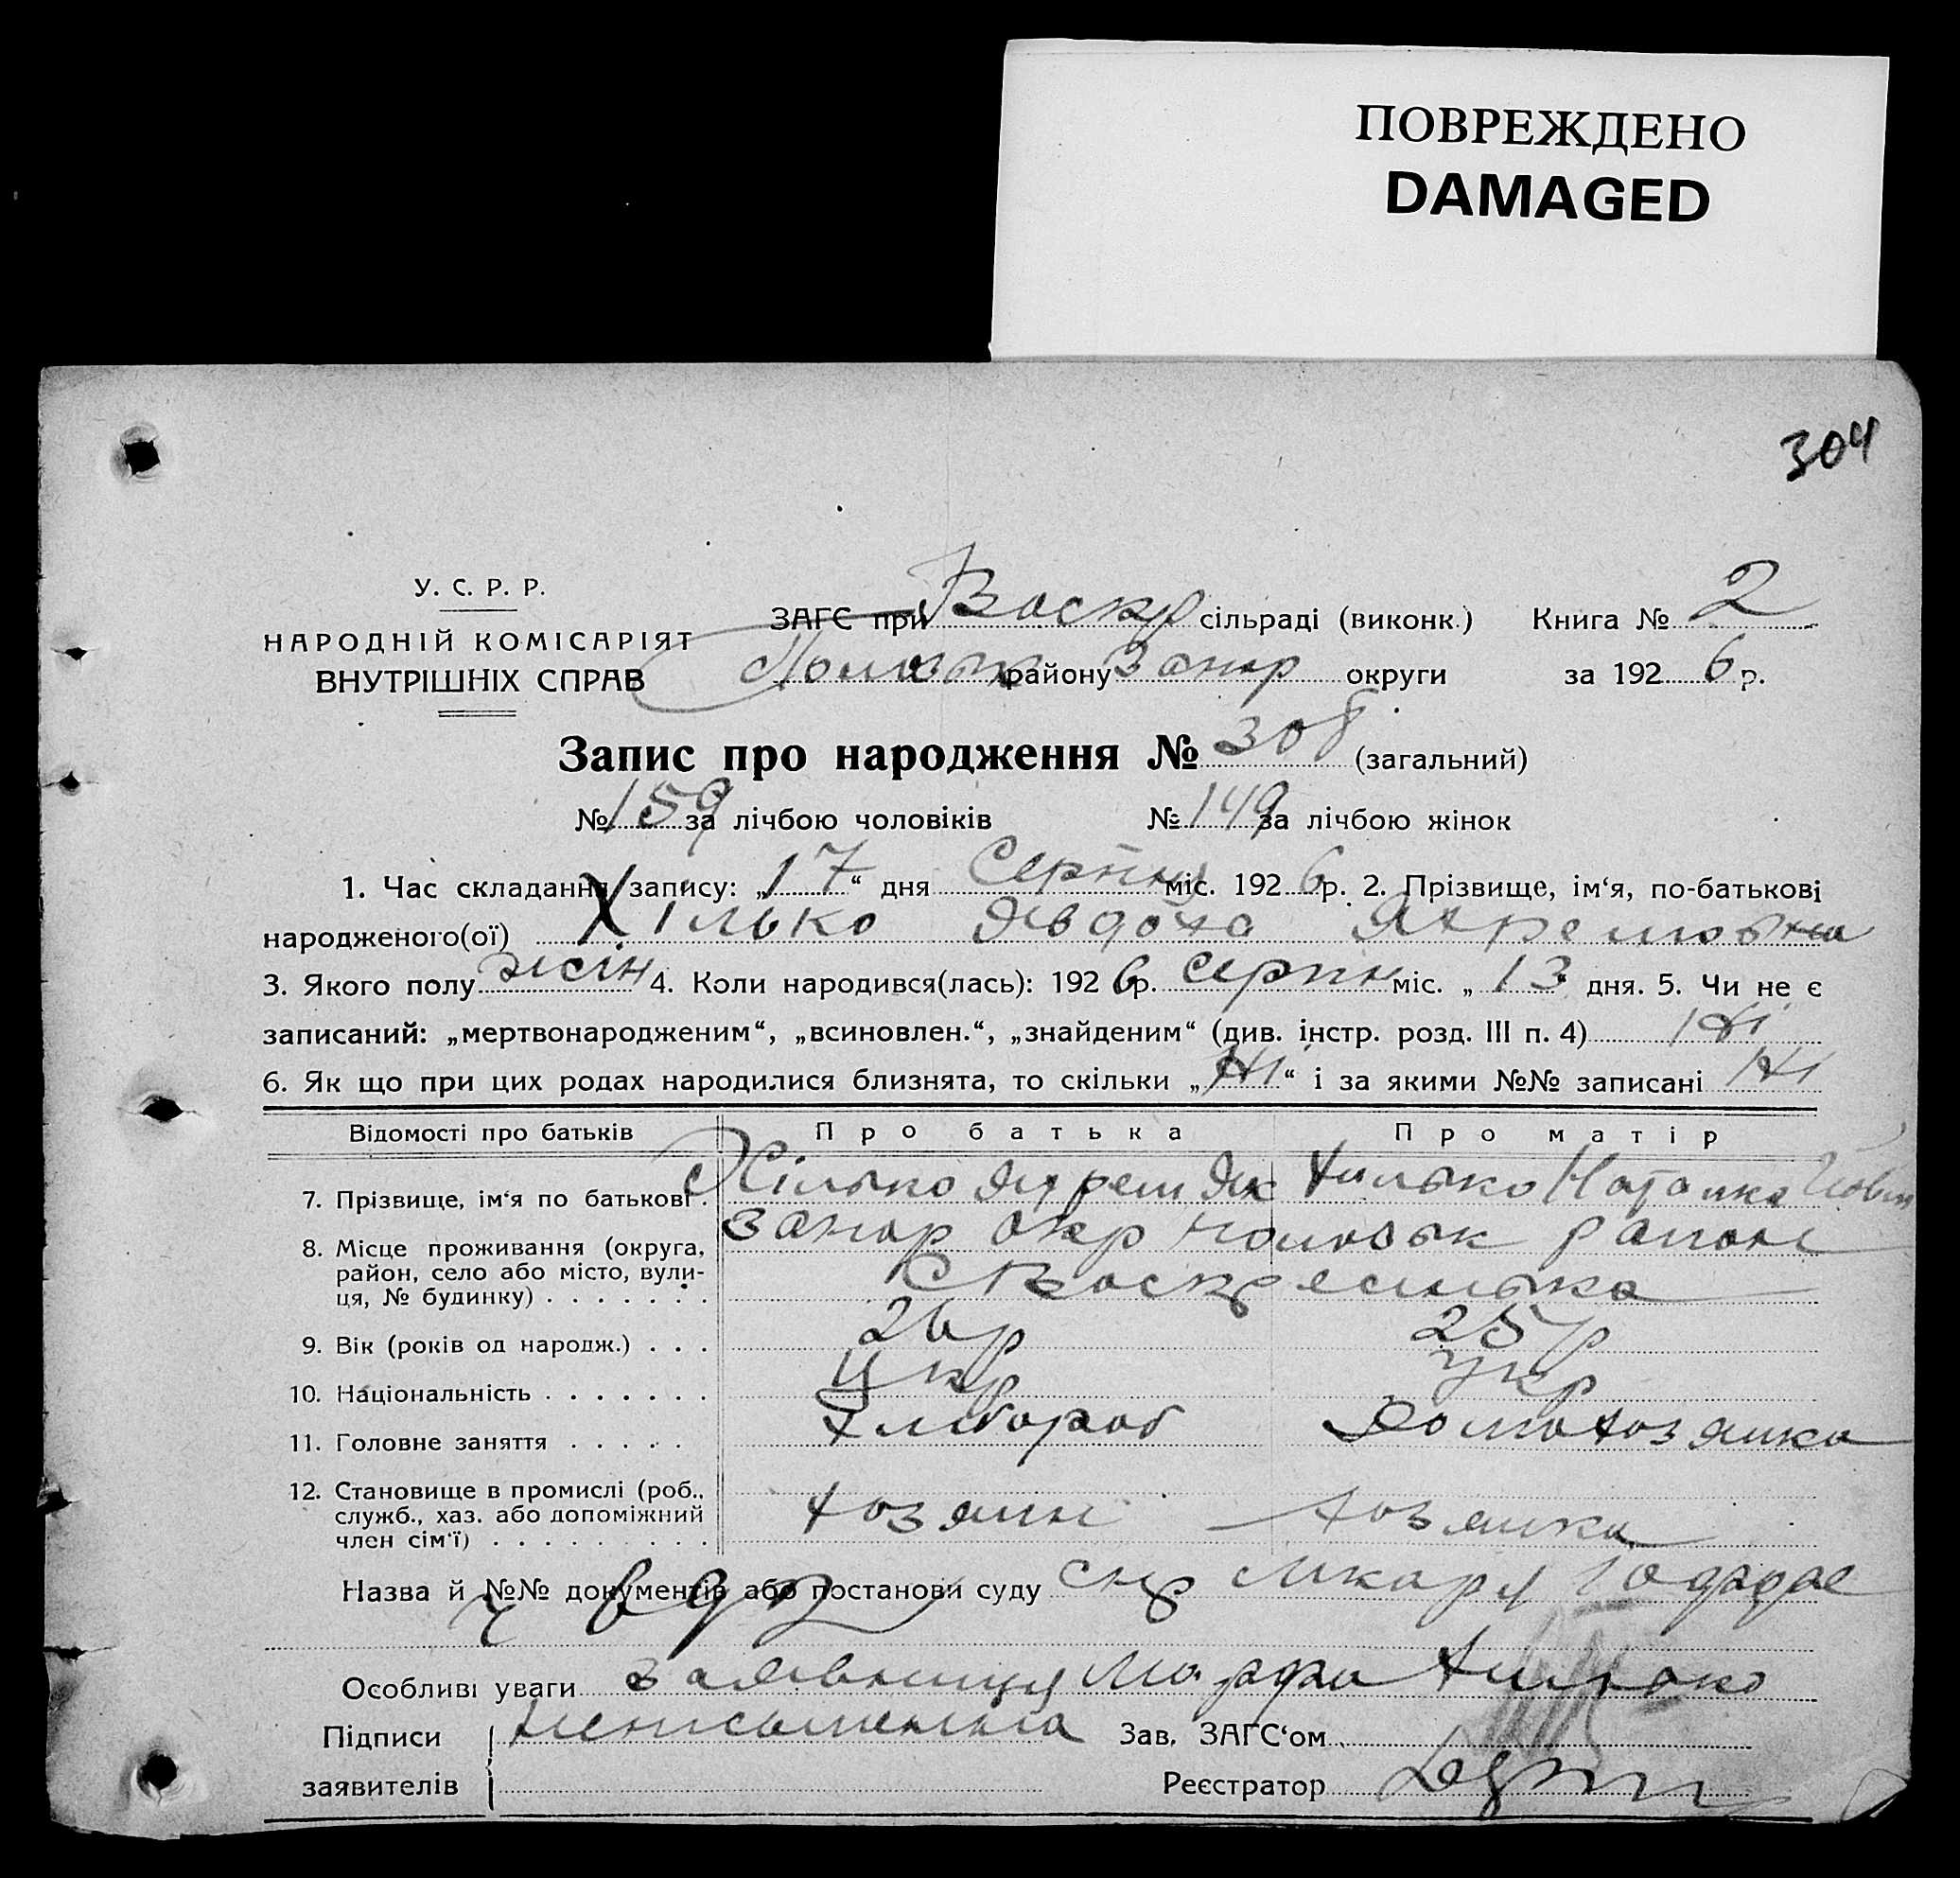 ПОВРЕЖДЕНО
DAMAGED
304
У. С. Р. Р.
НАРОДНІЙ КОМІСАРІЯТ
ВНУТРІШНІХ СПРАВ
ЗАГС при Воскр сільраді (виконк.) Книга № 2
району Запор округи за 192 6 р.
Запис про народження № 308 (загальний)
№ 159 за лічбою чоловіків № 149 за лічбою жінок
1. Час складання запису: „ 17 “ дня Серпня міс. 192 6 р. 2. Прізвище, ім‘я, по-батькові
народженого(ої) Хілько Явдоха Яхремовна
3. Якого полу жін 4. Коли народився(лась): 192 6 р. серпн міс. „ 13 “ дня. 5. Чи не є
записаний: „мертвонародженим“, „всиновлен.“, „знайденим“ (див. інстр. розд. III п. 4) Ні
6. Як що при цих родах народилися близнята, то скільки „ Ні “ і за якими №№ записані Ні
Відомості про батьків Про батька Про матір
7. Прізвище, ім‘я по батькові. Хілько Яхрем Як Хилько Наталка
8. Місце проживання (округа, Запор окр район
район, село або місто, вули-
ця, № будинку) . . . . . . . С Воскресенька
9. Вік (років од народж.) . . . 26 р 25 р
10. Національність . . . . . . . Укр Укр
11. Головне заняття . . . . . Хлібороб Домохозяйка
12. Становище в промислі (роб.,
служб., хаз. або допоміжний хозяин хозяйка
член сім‘ї) . . . . . . . . .
Назва й №№ документів або постанови суду
Особливі уваги заявниця Марфа Хилько
Підписи неписьменна Зав. ЗАГС‘ом
заявителів Реєстратор